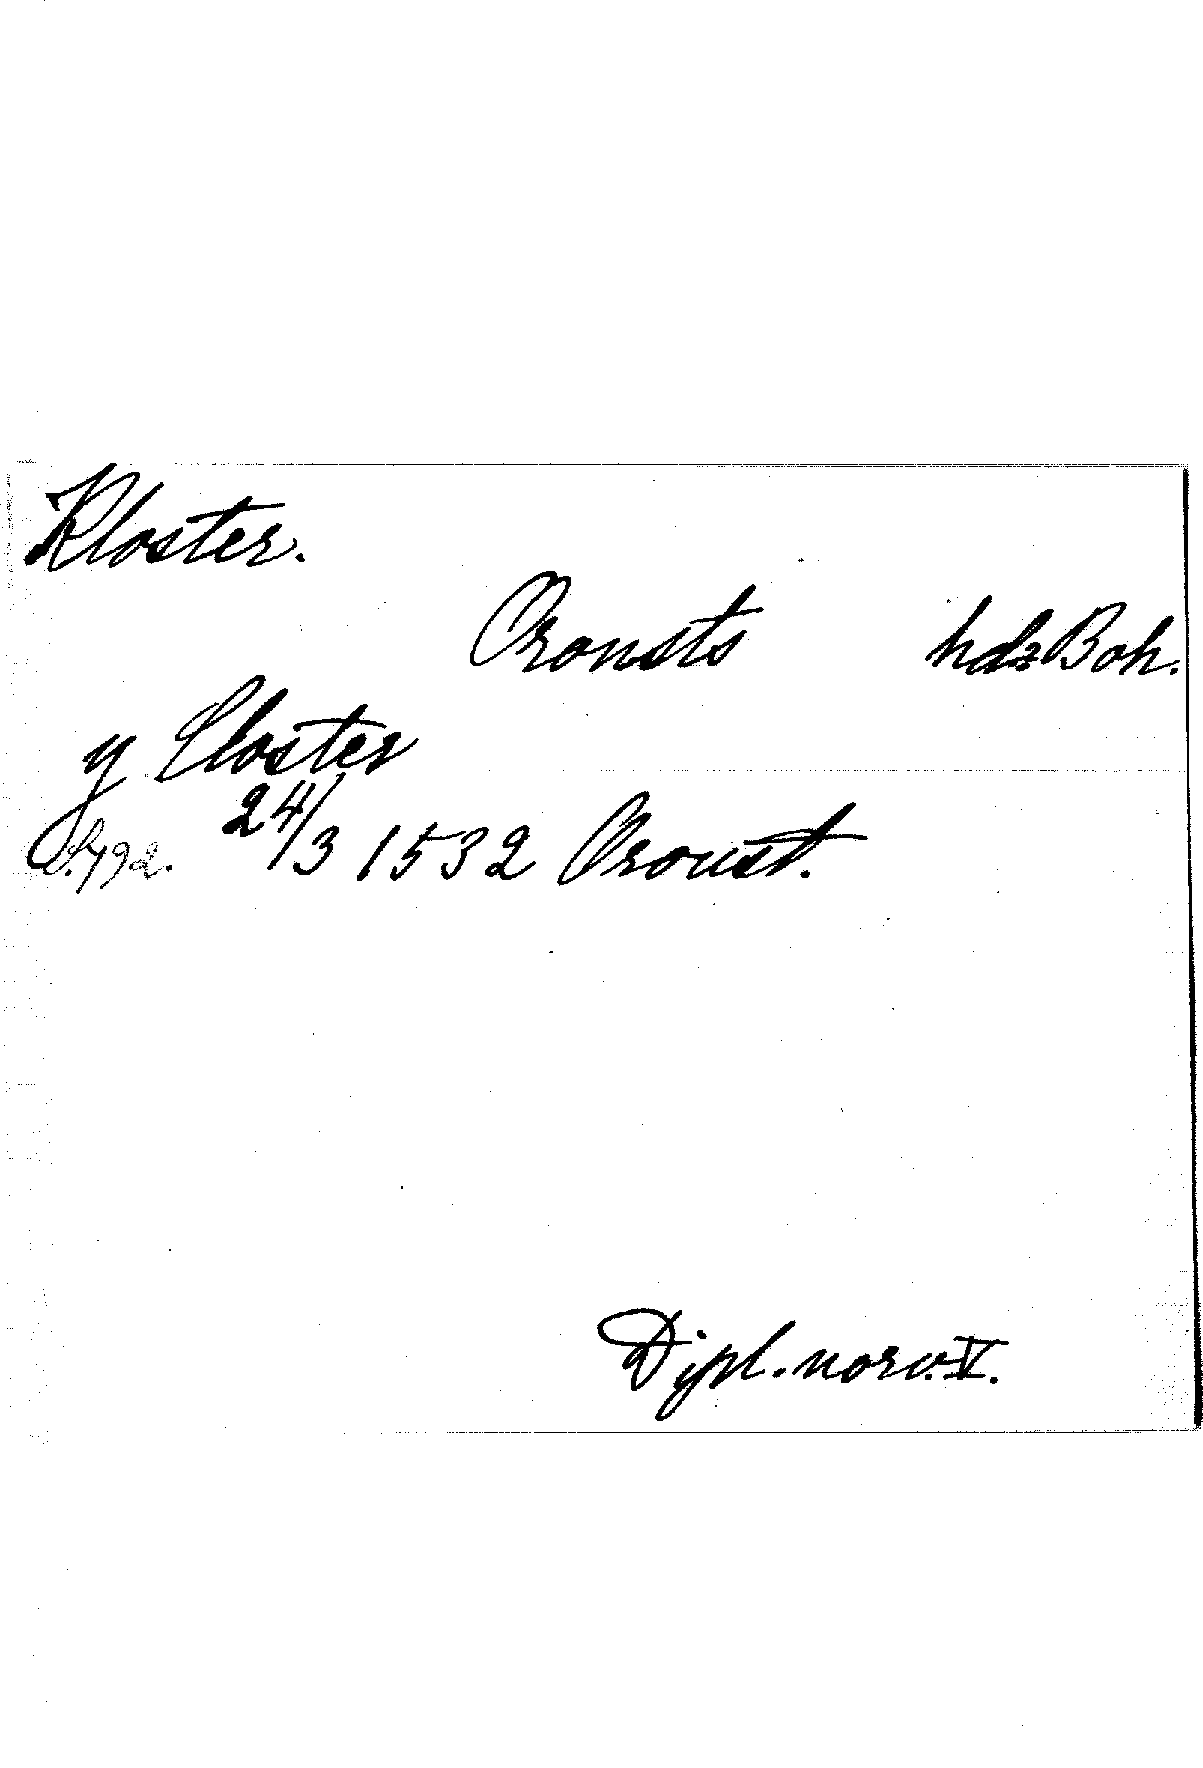 Kloster.
Orousts hdz Boh.
y Closter
S. 792. 24/3 1532 Oroust.
Dipl. norv. V.